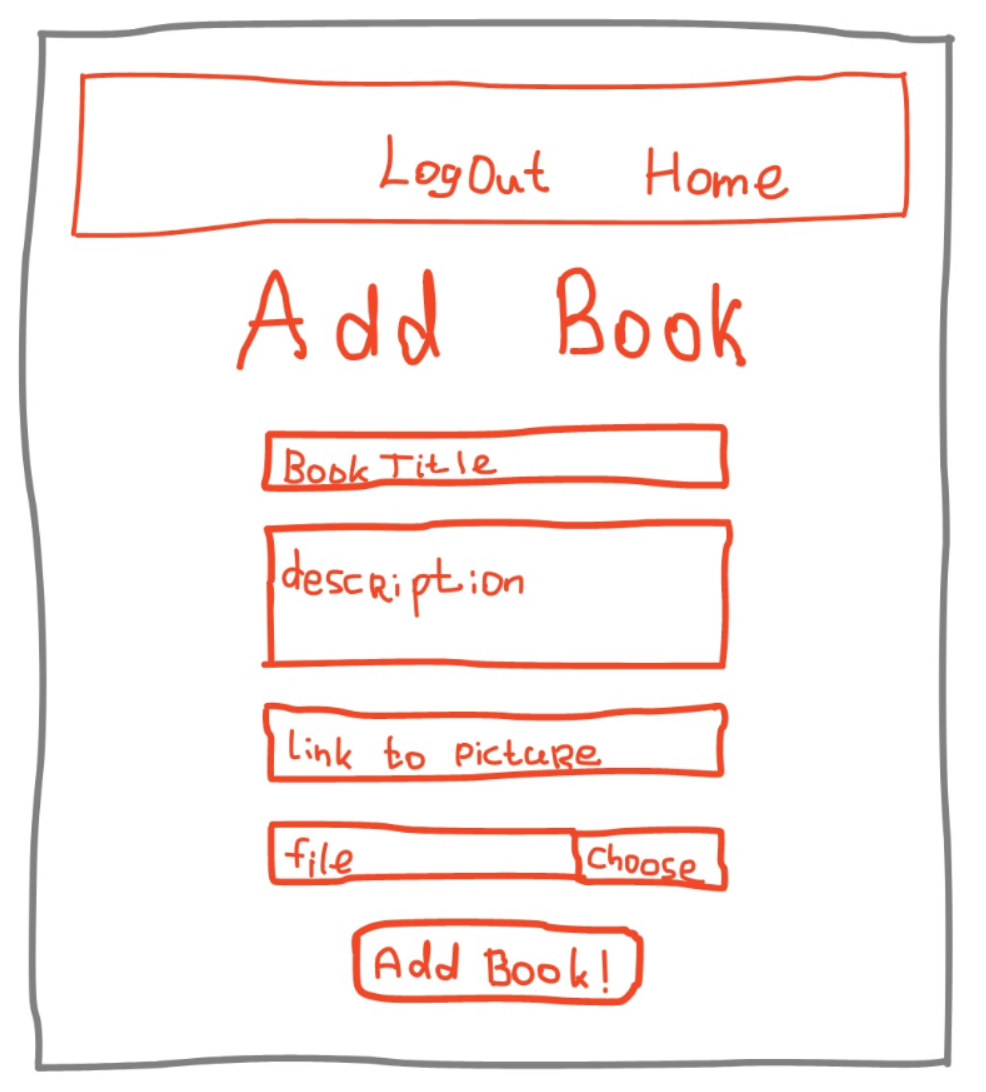 LogOut Home
Add Book
Book Title
description
link to picture
file Choose
Add Book!